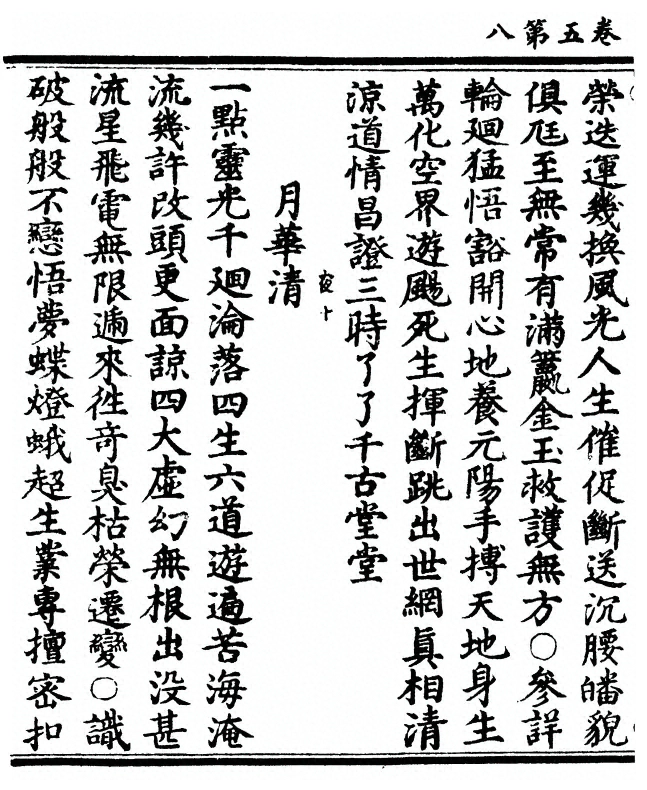 卷五第八
榮迭運幾換風光人生催促斷送沉腰皤貌
俱尫至無常有滿籯金玉救護無方○參詳
輪廻猛悟豁開心地養元陽手摶天地身生
萬化空界遊颺死生揮斷跳出世網真相清
涼道情昌證三時了了千古堂堂
月華清
一點靈光千廻淪落四生六道遊遍苦海淹
流幾許改頭更面諒四大虛幻無根出没甚
流星飛電無限遞來徃竒臭枯榮遷變○識
破般般不戀悟夢蝶燈蛾超生業專擅密扣